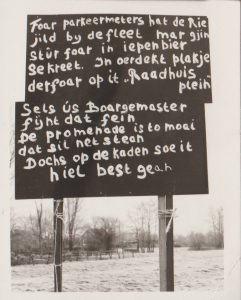 Foar parkeermeters hat de Rie
jild by de fleet mar gjin
stûr foar in iepenbier
Sekreet. In oerdekt plakje
derfoar op it "Raadhuis
plein"
Sels ús Boargemaster
fijnt dat fein
De promenade is to moai
dat sil net stean
Dochs op de kaden soe it
hiel best gean